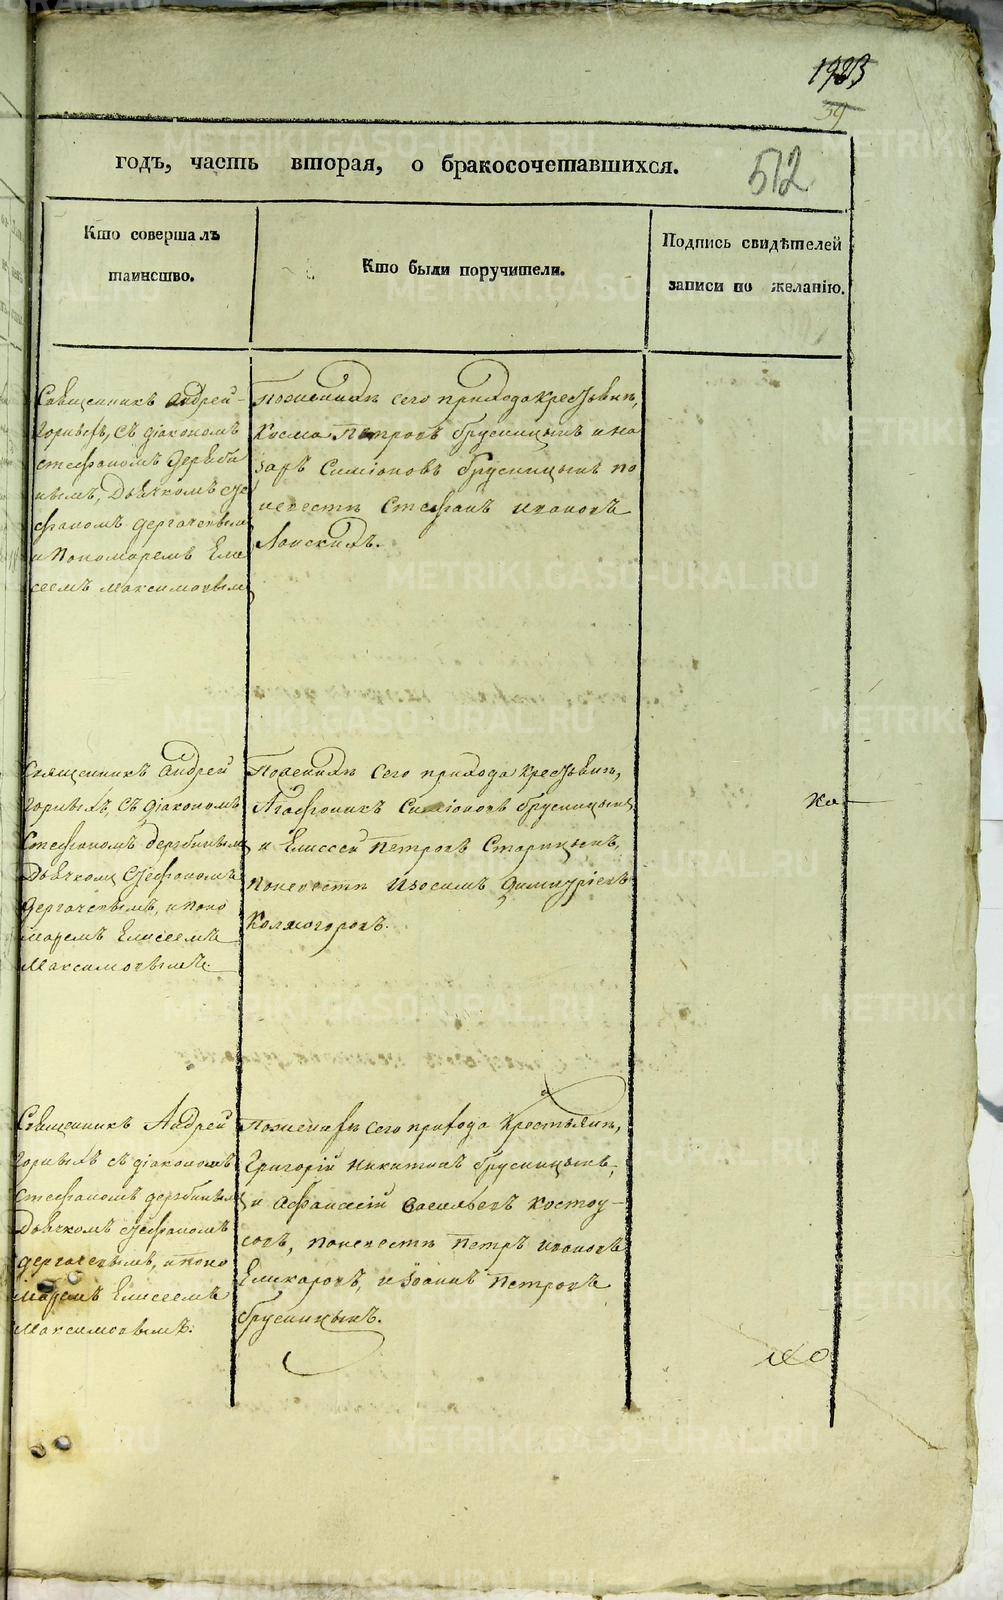 1983
39
512
годъ, часть вторая, о бракосочетавшихся.
Кто совершалъ
таинство.
Кто были поручители.
Подпись свидѣтелей
записи по желанію.
Священникъ Андрей
Горныхъ, съ діакономъ
Стефаномъ Дерябинымъ, Дьячкомъ Сте
фаномъ Дергачевымъ
и Пономаремъ Ели
сеемъ Максимовымъ
По женихѣ сего прихода крестьяне,
Косма Петровъ Брусницынъ и На
заръ Симіоновъ Брусницынъ по
невестѣ Стефанъ Ивановъ
Лоискихъ.
Священникъ Андрей
Горныхъ, съ діакономъ
Стефаномъ Дерябинымъ
Дьячкомъ Стефаномъ
Дергачевымъ, и поно
маремъ Елисеемъ
Максимовымъ.
По женихѣ сего прихода крестьяне,
Агафоникъ Симіоновъ Брусницынъ
и Елиссей Петровъ Старицынъ,
по невестѣ Изосимъ Димитріевъ
Колмогоровъ.
Священникъ Андрей
Горныхъ съ діакономъ
Стефаномъ Дерябинымъ
Дьячкомъ Стефаномъ
Дергачевымъ, и поно
маремъ Елисеемъ
Максимовымъ.
По женихѣ сего прихода Крестьяне,
Григорій Никитинъ Брусницынъ,
и Афанасій Васильевъ Костоу-
совъ, по невестѣ Петръ Ивановъ
Еликаровъ, и Іоаннъ Петровъ
Брусницынъ.
METRIKI.GASO-URAL.RU